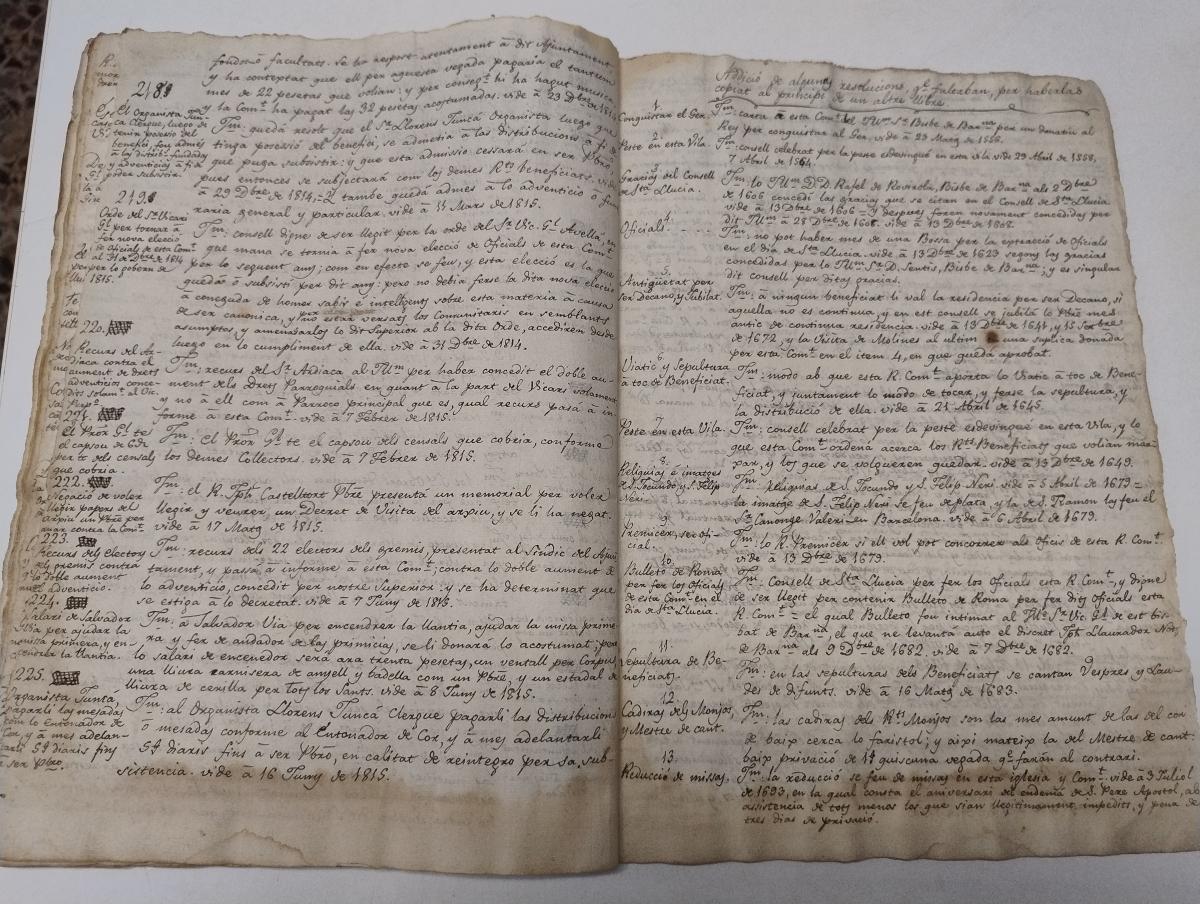 fondo ô facultats. Se ha respost atentament â dit Ajuntament
y ha conteptat que ell per aquesta vegada pagaria el tantum
mes de 22 pesetas que volian: y per conseq.t hi ha hagut musica
y la Com.t ha pagat las 32 pesetas acostumadas. vide â 23 Dbre de 1814
218
El Organista Tun-
cá Clergue, luego de
tenir possesio del
benefici, fou admes
â las distrib.s fundadas
y adventicias â fi de
poder subsistir.
Ττm: quedá resolt que el S.r Llorens Tuncá Organista luego que
tinga possesió del benefici, se admetia â las distribucions â fi de
que puga subsistir: y que esta admissio cessará en ser Pbre,
pues entonces se subjectará com los demes R.ts beneficiats. vide
â 29 Dbre de 1814. = Y tambe quedá admes â lo adventicio ô fune-
raria general y particular. vide â 11 Mars de 1815.
219.
Orde del S.r Vicari
G.l per tornar â
fer nova elecció
de oficials de esta Com.t
al 31 de Dbre de 1814
per lo gobern de
1815.
Ττm: consell digne de ser llegit per la orde del S.r Vic. G.l Avellá, en
que mana se tornia â fer nova elecció de Oficials de esta Com.t
per lo seguent any: com en efecte se feu, y esta elecció es la que
quedá ô subsistí per dit any: pero no debia ferse la dita nova elecció
â coneguda de homes sabis é intelligens sobre esta materia â causa
de ser canonica, y pro estar versats los Comunitaris en semblants
asumptos, y amenasarlos lo dit Superior ab la dita Orde, accediren desde
luego en lo cumpliment de ella. vide â 31 Dbre de 1814.
220.
Recurs del Ar-
diaca contra el
aument de drets
adventicios conce-
dits solam.t al Vic.
Ττm: recurs del S.r Ardiaca al Ill.m per haver concedit el doble au-
ment dels drets Parroquials en quant â la part del Vicari solament
y no â ell com â Parroco principal que es, qual recurs pasá â in-
forme â esta Com.t vide â 7 Febrer de 1815.
221.
El Pror G.l te el
capsou de
dels censals
que cobria.
Ττm: el Pror G.l te el capsou del censals que cobria, conforme
los demes Collectors. vide â 7 Febrer de 1815.
222.
Negació de voler
llegir papers del
arxiu un Pbre per
anar contra la Com.t
Ττm: el R. Jph Castelltort Pbre presentá un memorial per voler
llegir y veurer, un Decret de Visita del arxiu, y se li ha negat.
vide â 17 Matg de 1815.
223.
recurs dels electors
dels gremis contra
lo doble aument
del adventicio.
Ττm: recurs dels 22 electors dels gremis, presentat al Sindic del Ajun-
tament, y passá â informe â esta Com.t contra lo doble aument de
lo adventicio, concedit per nostre Superior: y se ha determinat que
se estiga â lo decretat. vide â 7 Juny de 1815.
224.
Salari de Salvador
Via per ajudar la
missa primera, y en-
cendrer la llantia.
Ττm: â Salvador Via per encendrer la llantia, ajudar la missa prime-
ra y fer de andador de las primicias, se li donará lo acostumat; per
lo salari de encenedor será ara trenta pesetas, un ventall per Corpus
una lliura carnisera de anyell y badella com un Pbre, y un estadal de
lliura de cerilla per tots los Sants. vide â 8 Juny de 1815.
225.
Organista Tuncá,
pagarli las mesadas
com lo Entonador de
Cor, y â mes adelan-
tarli 5 s diaris fins
â ser Pbre.
Ττm: al Organista Llorens Tuncá Clergue pagarli las distribucions
ô mesadas conforme al Entonador de Cor, y â mes adelantarli
5 s diaris fins â ser Pbre, en calitat de reintegro per sa sub-
sistencia. vide â 16 Juny de 1815.
Addició de algunes resolucions, q.e faltaban, per haberlas
copiat al principi de un altre llibre.
1.
Conquistar el Ger.
Ττm: carta â esta Com.t del Ill.m S.r Bisbe de Bar.na per un donatiu al
Rey per conquistar al Ger. vide â 23 Matg de 1556.
2.
Peste en esta Vila.
Ττm: consell celebrat per la peste esdevingué en esta vila vide 29 Abril de 1558,
7 Abril de 1564.
3.
Gracias del Consell
de S.ta Llucia.
Ττm: lo Ill.m D.D. Rafel de Rovirola, Bisbe de Bar.na als 2 Dbre
de 1606 concedi las gracias que se citan en el Consell de S.ta Llucia
vide â 13 Dbre de 1606 = y despues foren novament concedidas per
dit Ill.m â 28 Dbre de 1608. vide â 13 Dbre de 1608.
4.
Oficials. - - -
Ττm: no pot haber mes de una Bossa per la extracció de Oficials
en el dia de S.ta Llucia. vide â 13 Dbre de 1623 segons las gracias
concedidas per lo Ill.m S.r D. Sentis, Bisbe de Bar.na; y es singular
dit consell per ditas gracias.
5.
Antiguetat per
ser Decano, y Jubilat.
Ττm: â ningun beneficiat li val la residencia per ser Decano, si
aquella no es continua, y en est consell se jubilá lo Pbre mes
antic de continua residencia. vide â 13 Dbre de 1641, y 15 Setbre
de 1672, y la Visita de Molines al ultim de una suplica donada
per esta Com.t en el item. 4, en que quedá aprobat.
6.
Viatic y Sepultura
â toc de Beneficiat.
Ττm: modo ab que esta R. Com.t aporta lo Viatic â toc de Bene-
ficiat, y juntament lo modo de tocar, y ferse la sepultura, y
la distribució de ella. vide â 21 Abril de 1645.
Peste en esta Vila.
Ττm: consell celebrat per la peste esdevingué en esta Vila, y lo
que esta Com.t ordená acerca los R.ts Beneficiats que volian mar-
xar, y los que se volgueren quedar. vide â 13 Dbre de 1649.
8.
Reliquias é imatges
de S. Jocundo y S. Felip
Neri.
Ττm: Reliquias de S. Jocundo y S. Felip Neri vide â 5 Abril de 1673 =
la imatge de S. Felip Neri se feu de plata, y la de S. Ramon ley feu el
S.r Canonge Valeri en Barcelona. vide â 6 Abril de 1679.
9.
Premicer, ser ofi-
cial.
Ττm: lo R. Premicer si ell vol pot concorrer als Oficis de esta R. Com.t
vide â 13 Dbre de 1679.
10.
Bulleto de Roma
per fer los Oficials
de esta Com.t en el
dia de S.ta Llucia.
Ττm: Consell de S.ta Llucia per fer los Oficials esta R. Com.t, y digne
de ser llegit per contenir Bulleto de Roma per fer dits Oficials esta
R. Com.t = el qual Bulleto fou intimat al Ill.e S.r Vic. G.l de est bis-
bat de Bar.na, el que ne llevantá auto el discret Jph Llaurador Not.
de Bar.na als 9 Dbre de 1682. vide â 7 Dbre de 1682.
11.
Sepultura de Be-
neficiats.
Ττm: en las sepulturas dels Beneficiats se cantan Vespres y Lau-
des de difunts. vide â 16 Matg de 1683.
12
Cadiras dels Monjos,
y Mestre de cant.
Ττm: las cadiras dels R.ts Monjos son las mes amunt de las del cor
de baix cerca lo faristol; y aixi mateix la del Mestre de cant:
baix privació de 1 s quiscuna vegada q.e farán al contrari.
13
Reducció de missas.
Ττm: la reducció se feu de missas en esta iglesia y Com.t vide â 3 Juliol
de 1693, en la qual consta el aniversari del endemá de S. Pere Apostol, ab
assistencia de tots menos los que sian llegitimament impedits, y pena de
tres dias de privació.